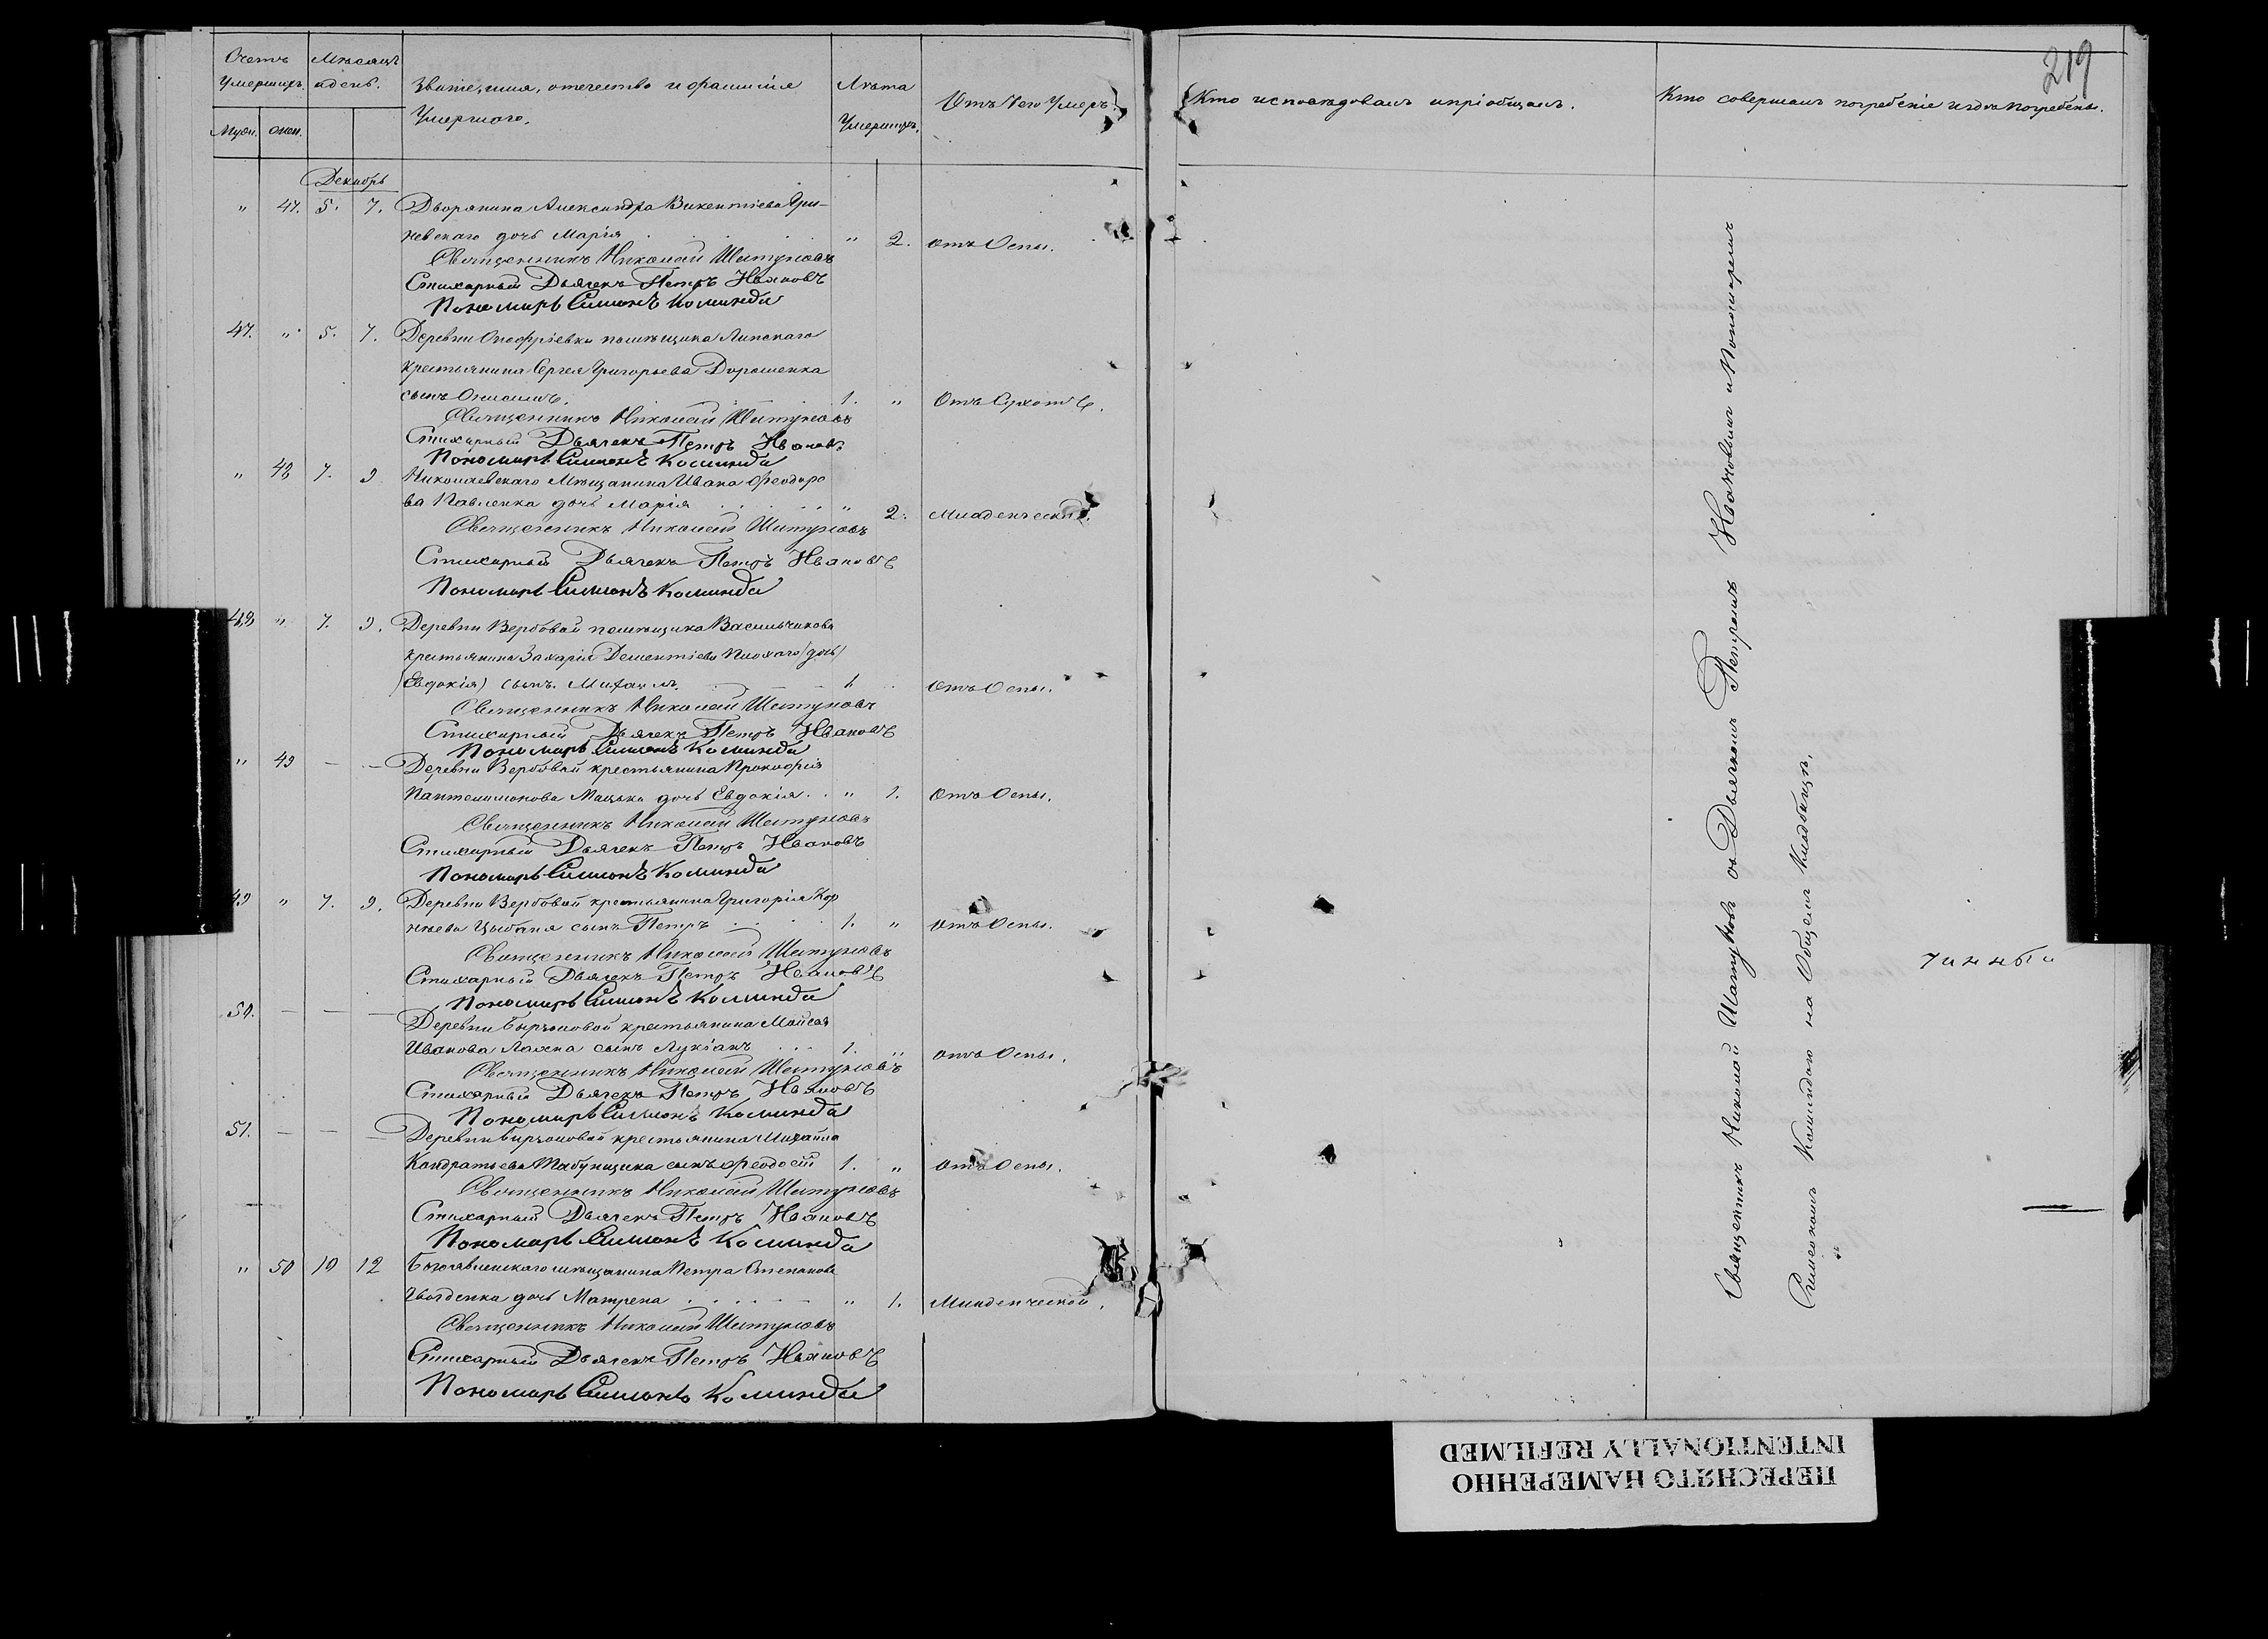 Счетъ Умершихъ.
Мѣсяцъ и день.
Званіе, имя, отечество и фамилія Умершого.
Лѣта Умершихъ.
Отъ Чего Умеръ.
Кто исповѣдовалъ и пріобщалъ.
Кто совершалъ погребеніе и гдѣ погребены.
219
Муж. Жен.
Декабрь
" 47. 5. 7. Дворянина Александра Викентіева Гри-
невскаго дочь Марія " 2. Отъ Оспы.
Священникъ Николай Шатуновъ
Стихарный Дьячекъ Петръ Ивановъ
Пономарь Симонъ Коминда
47. " 5. 7. Деревни Онофріевки помѣщика Липскаго
крестьянина Сергея Григорьева Дорошенка
сынъ 1. " Отъ Сухоты.
Священникъ Николай Шатуновъ
Стихарный Дьячекъ Петръ Ивановъ
Пономарь Симонъ Коминда
" 48 7. 9. Николаевскаго Мѣщанина Ивана Феодоро
ва Павленка дочь Марія " 2. Младенческой.
Священникъ Николай Шатуновъ
Стихарный Дьячекъ Петръ Ивановъ
Пономарь Симонъ Коминда
48 " 7. 9. Деревни Вербовой помѣщика Васильчикова
крестьянина Захарія Дементіева Плохаго (дочь)
(Евдокія) сынъ Михаилъ. 1. Отъ Оспы.
Священникъ Николай Шатуновъ
Стихарный Дьячекъ Петръ Ивановъ
Пономарь Симонъ Коминда
" 49 — — Деревни Вербовой крестьянина Прокофія
Пантелимонова Мацька дочь Евдокія " 1. Отъ Оспы.
Священникъ Николай Шатуновъ
Стихарный Дьячекъ Петръ Ивановъ
Пономарь Симонъ Коминда
49 " 7. 9. Деревни Вербовой крестьянина Григорія Кор
нѣева Цыбаня сынъ Петръ 1. " Отъ Оспы.
Священникъ Николай Шатуновъ
Стихарный Дьячекъ Петръ Ивановъ
Пономарь Симонъ Коминда
50. — — — Деревни крестьянина Мойсея
Иванова сынъ Лукіанъ 1. " Отъ Оспы.
Священникъ Николай Шатуновъ
Стихарный Дьячекъ Петръ Ивановъ
Пономарь Симонъ Коминда
51. — — — Деревни крестьянина Михайла
Кондратьева Табунщика сынъ Феодосій 1. " Отъ Оспы.
Священникъ Николай Шатуновъ
Стихарный Дьячекъ Петръ Ивановъ
Пономарь Симонъ Коминда
" 50 10 12 Богоявленскаго мѣщанина Петра Степанова
Гвозденка дочь Матрена " 1. Младенческой.
Священникъ Николай Шатуновъ
Стихарный Дьячекъ Петръ Ивановъ
Пономарь Симонъ Коминда
Священникъ Николай Шатуновъ съ Дьячкомъ Петромъ Ивановымъ и Пономаремъ
Симеономъ Коминдою на Общемъ Кладбищѣ.
ПЕРЕСНЯТО НАМЕРЕННО
INTENTIONALLY REFILMED